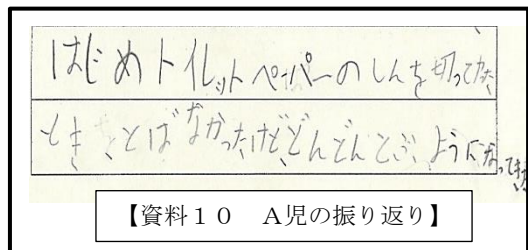 はじめトイレットペーパーのしんを切ってた
とき、とばなかったけど、どんどんとぶようになってきた
【資料10　A児の振り返り】